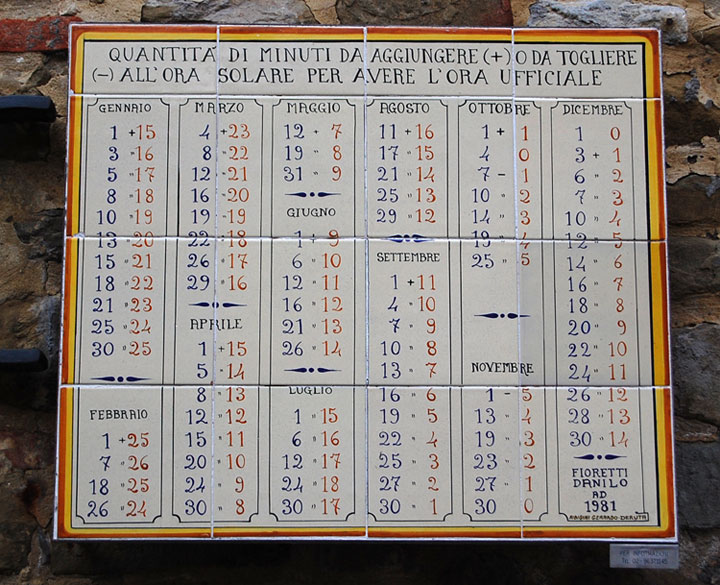 QUANTITA' DI MINUTI DA AGGIUNGERE (+) O DA TOGLIERE
(-) ALL'ORA SOLARE PER AVERE L'ORA UFFICIALE
GENNAIO
1 +15
3 "16
5 "17
8 "18
10 "19
13 "20
15 "21
18 "22
21 "23
25 "24
30 "25
FEBBRAIO
1 +25
7 "26
18 "25
26 "24
MARZO
4 +23
8 "22
12 "21
16 "20
19 "19
22 "18
26 "17
29 "16
APRILE
1 +15
5 "14
8 "13
12 "12
15 "11
20 "10
24 " 9
30 " 8
MAGGIO
12 + 7
19 " 8
31 " 9
GIUGNO
1 + 9
6 "10
12 "11
16 "12
21 "13
26 "14
LUGLIO
1 "15
6 "16
12 "17
24 "18
30 "17
AGOSTO
11 +16
17 "15
21 "14
25 "13
29 "12
SETTEMBRE
1 +11
4 "10
7 " 9
10 " 8
13 " 7
16 " 6
19 " 5
22 " 4
25 " 3
27 " 2
30 " 1
OTTOBRE
1 + 1
4 0
7 - 1
10 " 2
14 " 3
19 " 4
25 " 5
NOVEMBRE
1 - 5
13 " 4
19 " 3
23 " 2
27 " 1
30 0
DICEMBRE
1 0
3 + 1
6 " 2
7 " 3
10 " 4
12 " 5
14 " 6
16 " 7
18 " 8
20 " 9
22 "10
24 "11
26 "12
28 "13
30 "14
FIORETTI
DANILO
AD
1981
GERARDO DERUTA
PER INFORMAZIONI